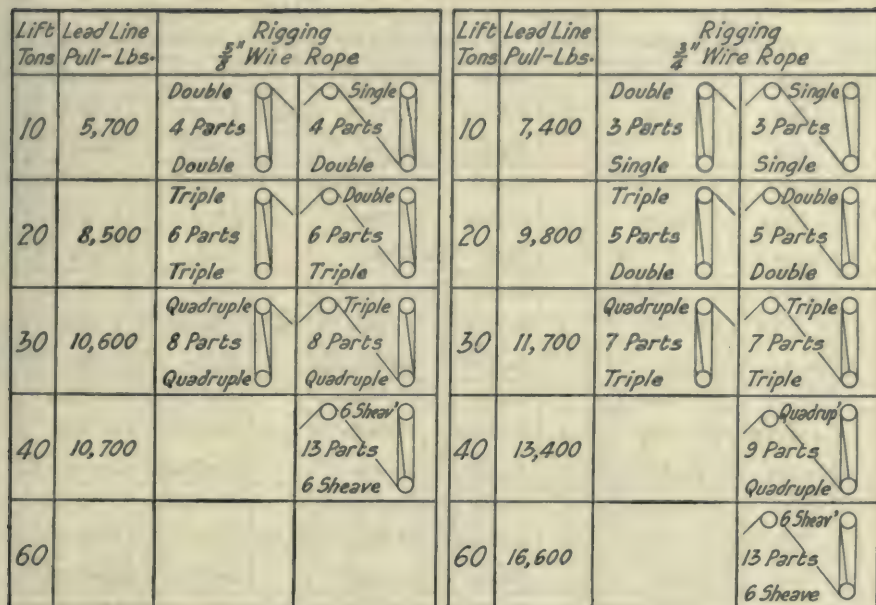 Lift Tons | Lead Line Pull-Lbs. | Rigging 5/8" Wire Rope
10 | 5,700 | Double 4 Parts Double | Single 4 Parts Double
20 | 8,500 | Triple 6 Parts Triple | Double 6 Parts Triple
30 | 10,600 | Quadruple 8 Parts Quadruple | Triple 8 Parts Quadruple
40 | 10,700 | 6 Sheav' 13 Parts 6 Sheave
60
Lift Tons | Lead Line Pull-Lbs. | Rigging 3/4" Wire Rope
10 | 7,400 | Double 3 Parts Single | Single 3 Parts Single
20 | 9,800 | Triple 5 Parts Double | Double 5 Parts Double
30 | 11,700 | Quadruple 7 Parts Triple | Triple 7 Parts Triple
40 | 13,400 | Quadrup' 9 Parts Quadruple
60 | 16,600 | 6 Sheav' 13 Parts 6 Sheave